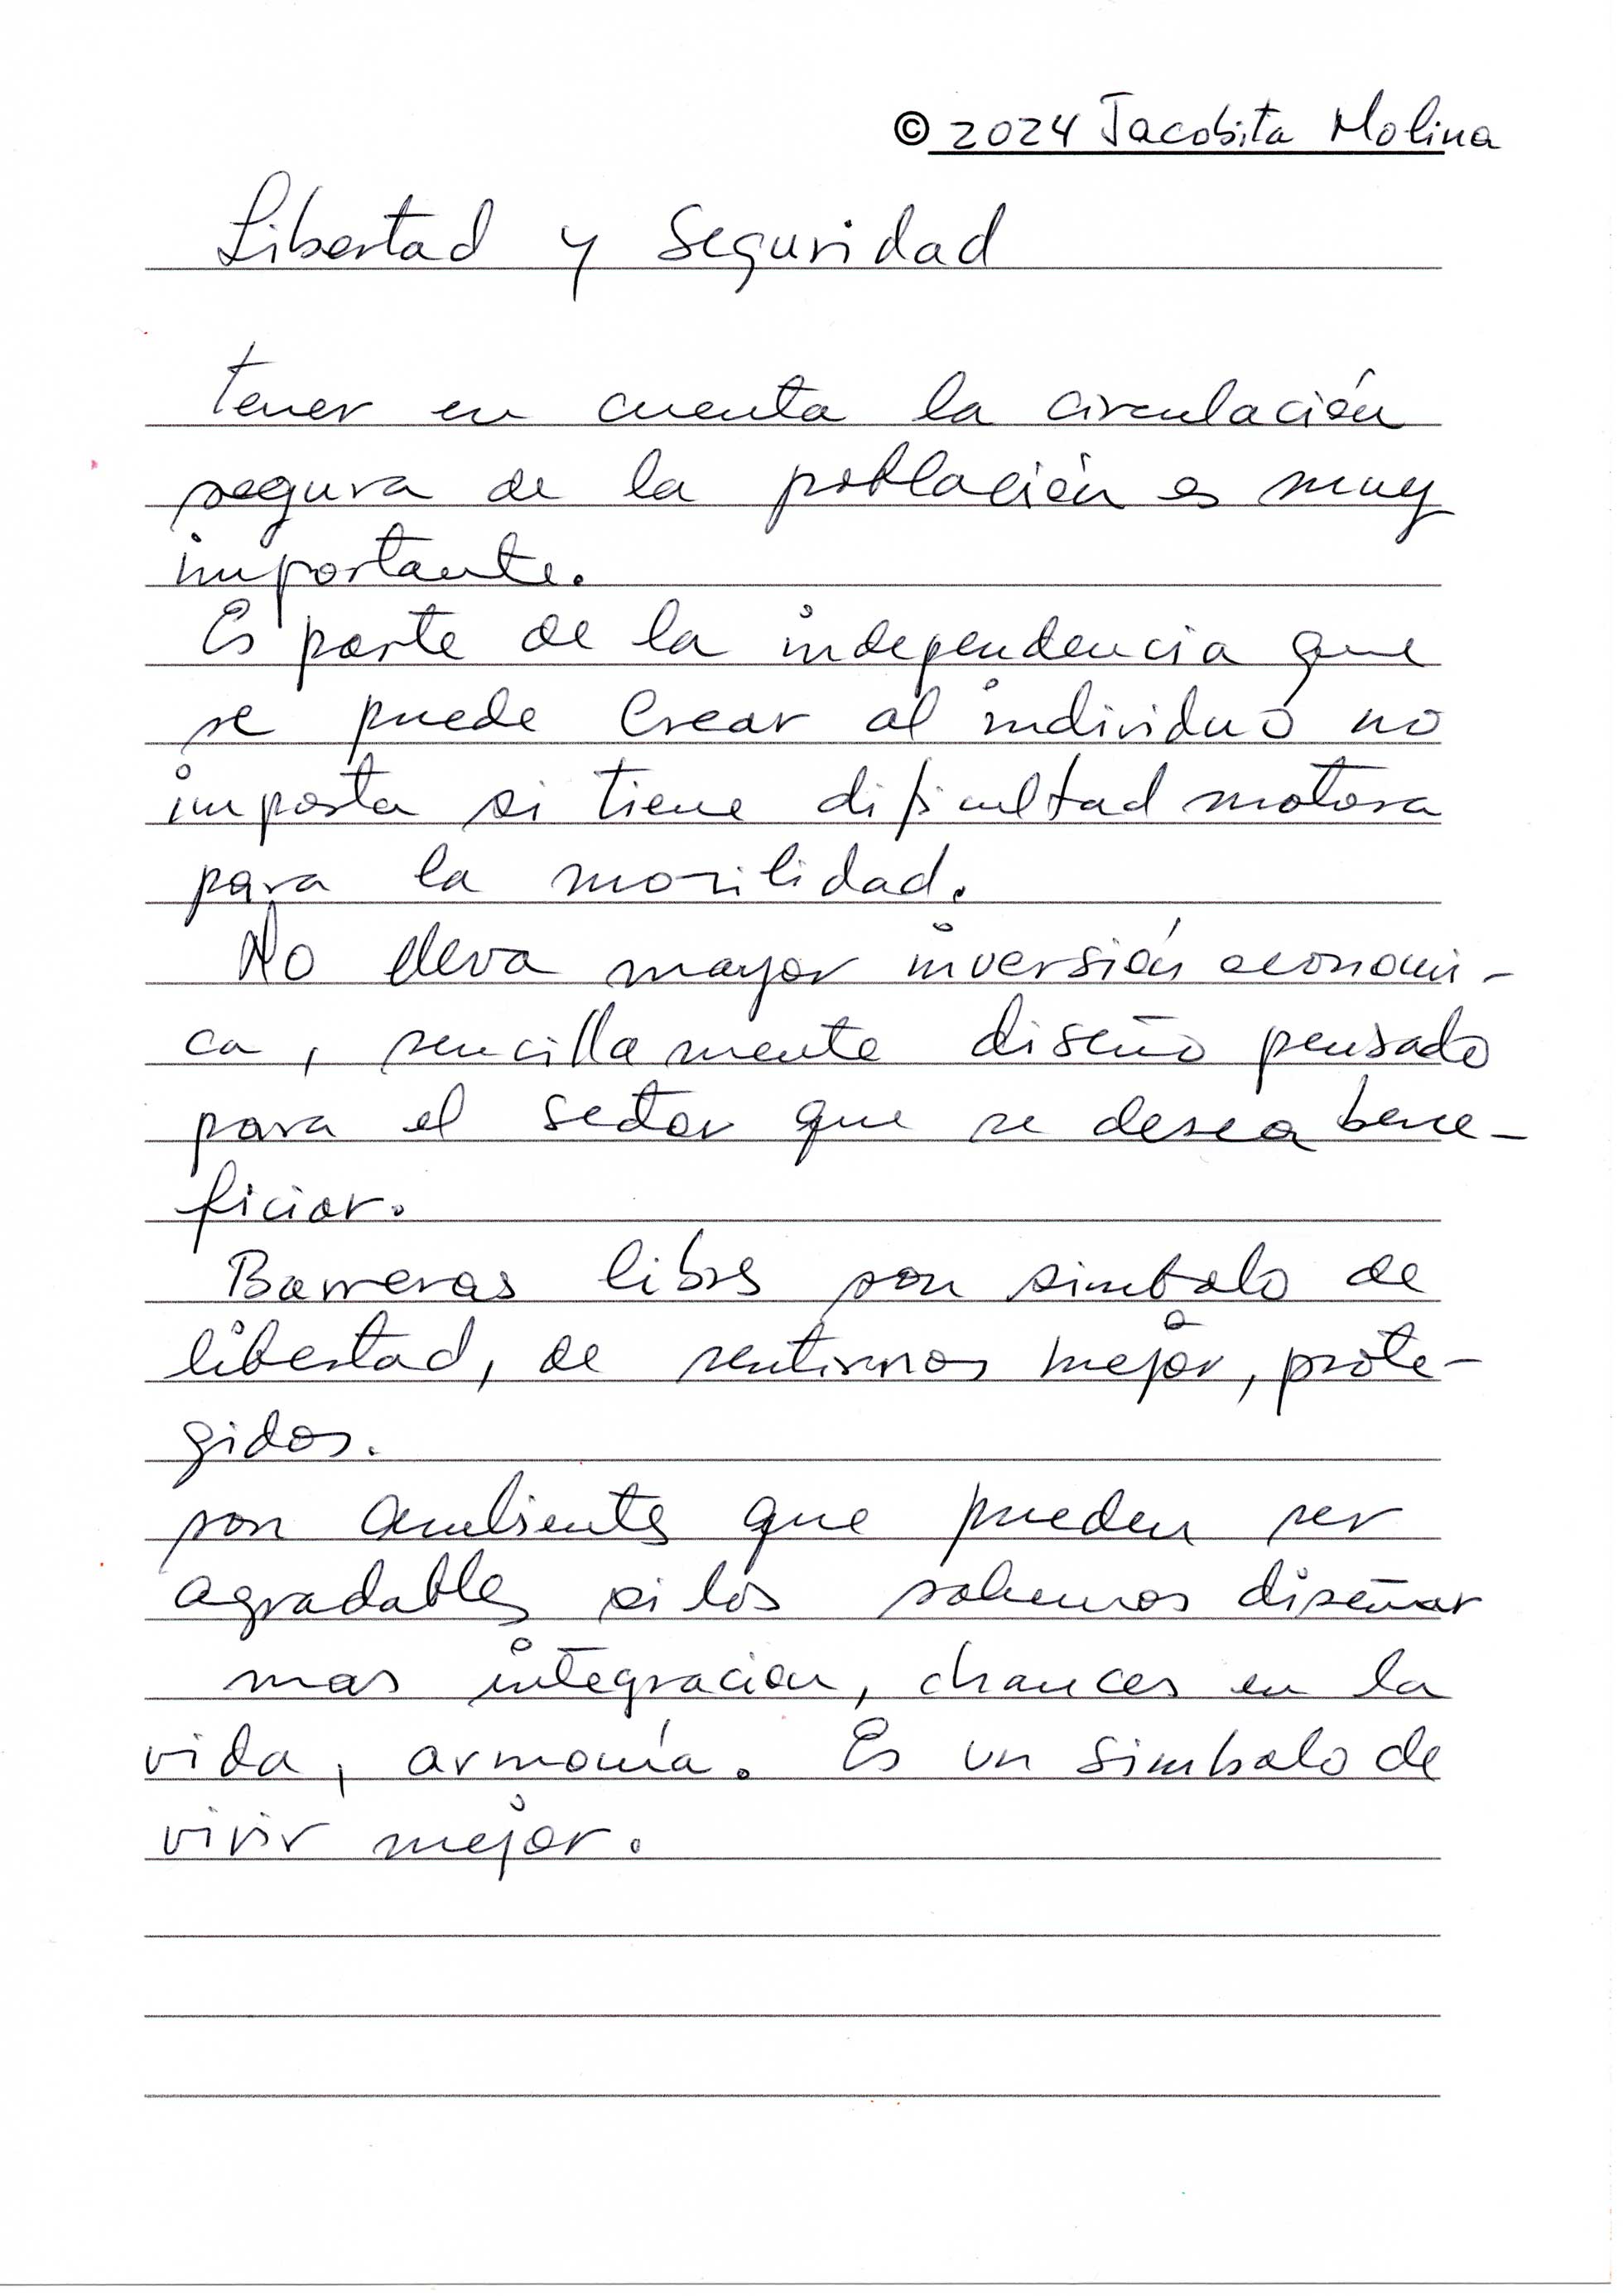 © 2024 Jacobita Molina
Libertad y Seguridad
tener en cuenta la circulación
segura de la población es muy
importante.
Es parte de la independencia que
se puede crear al individuo no
importa si tiene dificultad motora
para la movilidad.
No lleva mayor inversión economi-
ca, sencillamente diseño pensado
para el sector que se desea bene-
ficiar.
Barreras libres son simbolo de
libertad, de sentirnos mejor, prote-
gidos.
son ambientes que pueden ser
agradables si los sabemos diseñar
mas integracion, chances en la
vida, armonía. Es un simbolo de
vivir mejor.